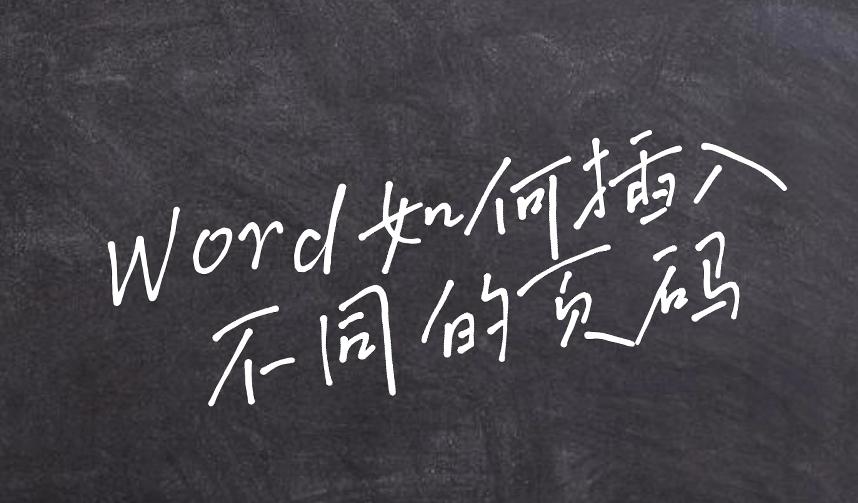 Word如何插入
不同的页码